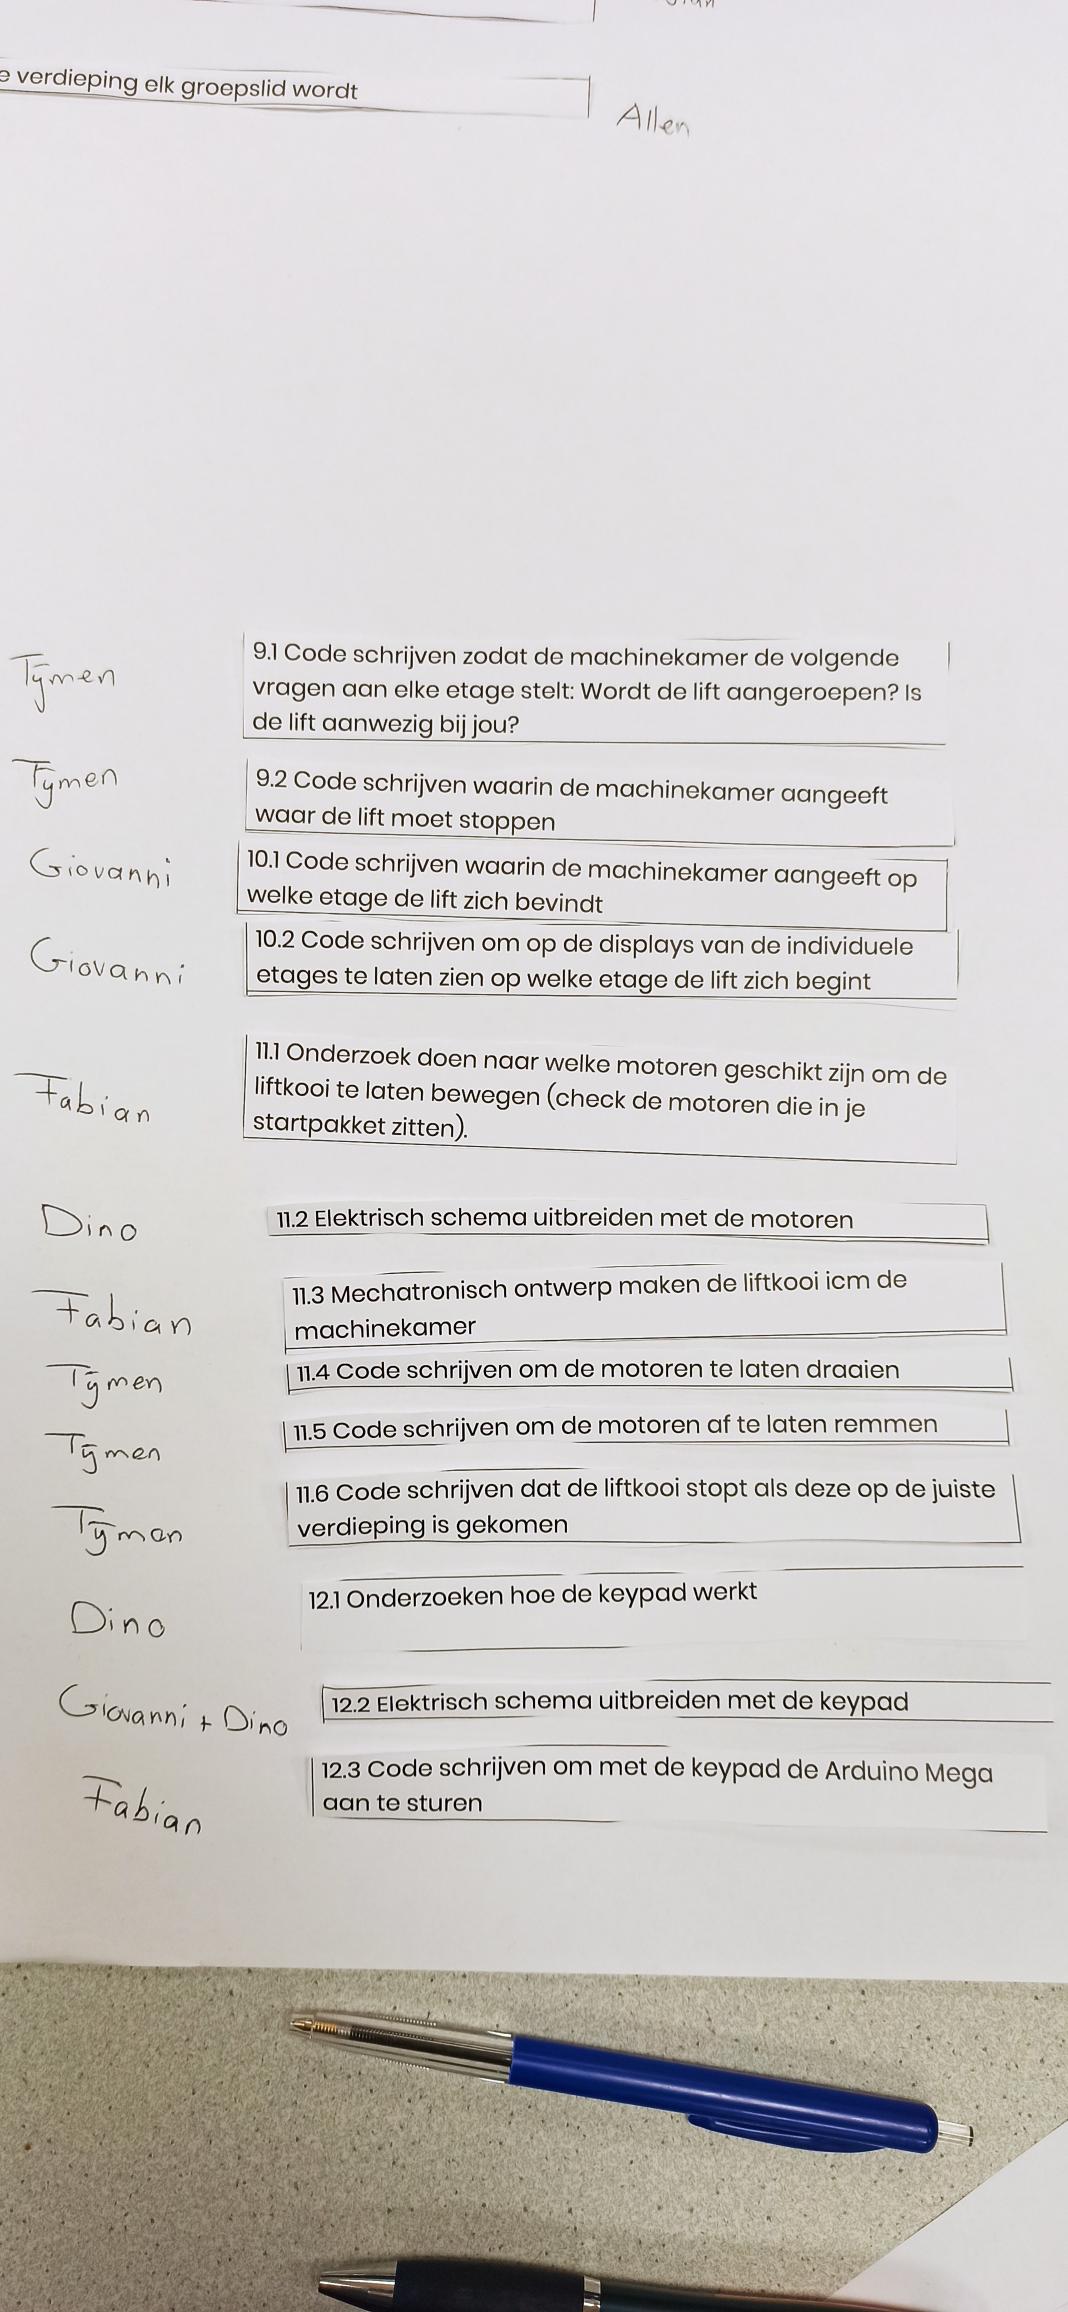 verdieping elk groepslid wordt
Allen
Tijmen
9.1 Code schrijven zodat de machinekamer de volgende
vragen aan elke etage stelt: Wordt de lift aangeroepen? Is
de lift aanwezig bij jou?
Tijmen
9.2 Code schrijven waarin de machinekamer aangeeft
waar de lift moet stoppen
Giovanni
10.1 Code schrijven waarin de machinekamer aangeeft op
welke etage de lift zich bevindt
Giovanni
10.2 Code schrijven om op de displays van de individuele
etages te laten zien op welke etage de lift zich begint
Fabian
11.1 Onderzoek doen naar welke motoren geschikt zijn om de
liftkooi te laten bewegen (check de motoren die in je
startpakket zitten).
Dino
11.2 Elektrisch schema uitbreiden met de motoren
Fabian
11.3 Mechatronisch ontwerp maken de liftkooi icm de
machinekamer
Tijmen
11.4 Code schrijven om de motoren te laten draaien
Tijmen
11.5 Code schrijven om de motoren af te laten remmen
Tijmen
11.6 Code schrijven dat de liftkooi stopt als deze op de juiste
verdieping is gekomen
Dino
12.1 Onderzoeken hoe de keypad werkt
Giovanni + Dino
12.2 Elektrisch schema uitbreiden met de keypad
Fabian
12.3 Code schrijven om met de keypad de Arduino Mega
aan te sturen